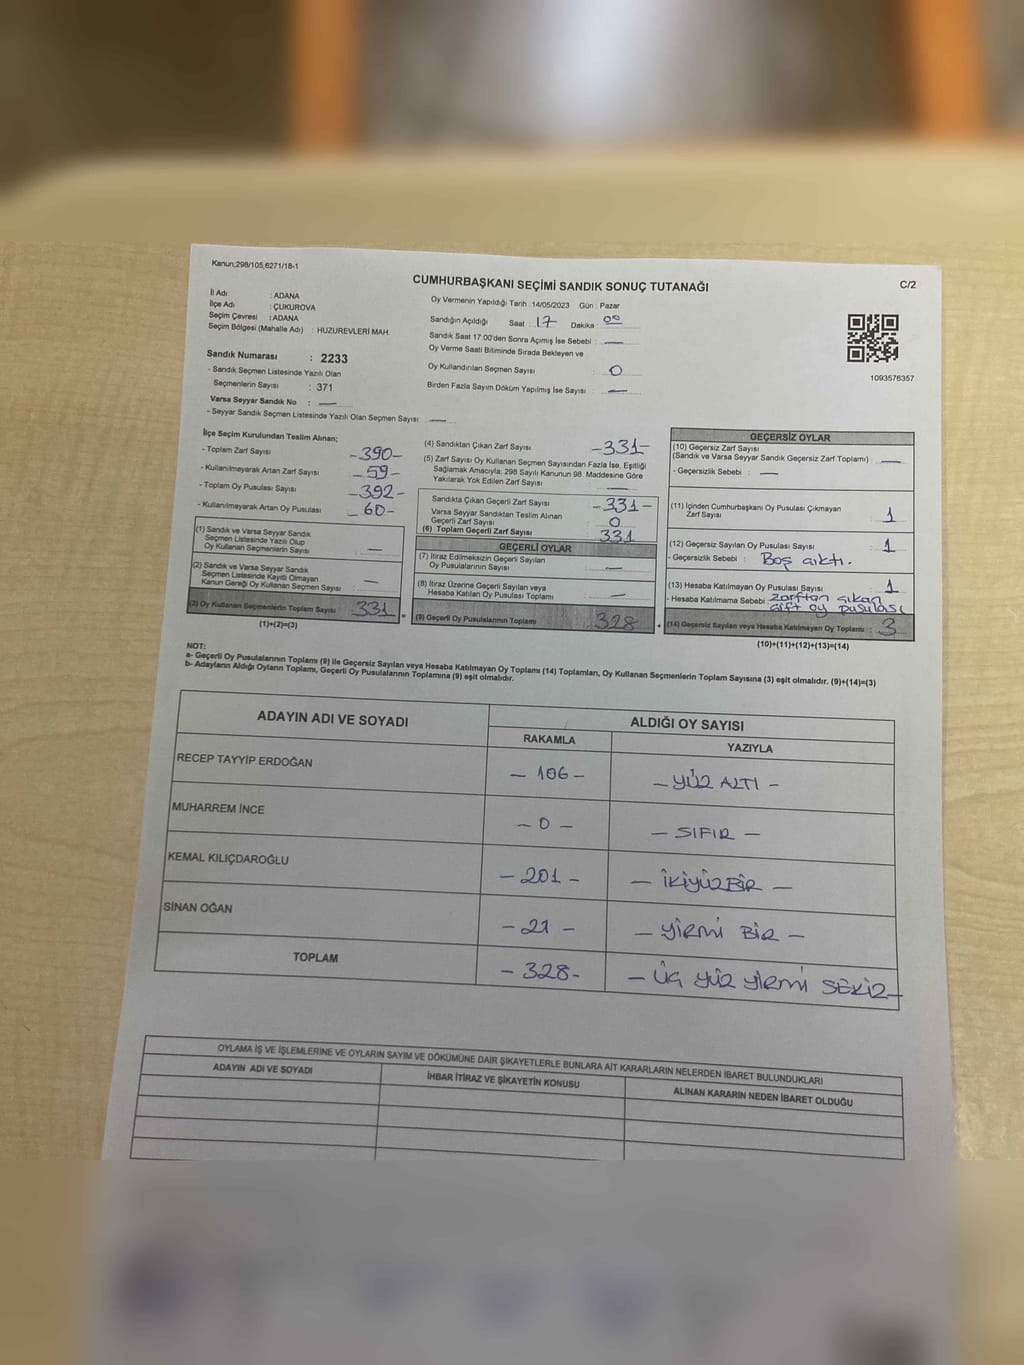 Kanun;298/105,6271/18-1
CUMHURBAŞKANI SEÇİMİ SANDIK SONUÇ TUTANAĞI
C/2
İl Adı : ADANA
İlçe Adı : ÇUKUROVA
Seçim Çevresi : ADANA
Seçim Bölgesi (Mahalle Adı) : HUZUREVLERİ MAH.
Sandık Numarası : 2233
- Sandık Seçmen Listesinde Yazılı Olan
Seçmenlerin Sayısı : 371
Varsa Seyyar Sandık No : —
- Seyyar Sandık Seçmen Listesinde Yazılı Olan Seçmen Sayısı: —
Oy Vermenin Yapıldığı Tarih : 14/05/2023 Gün : Pazar
Sandığın Açıldığı Saat : 17 Dakika : 00
Sandık Saat 17:00'den Sonra Açımış İse Sebebi : —
Oy Verme Saati Bitiminde Sırada Bekleyen ve
Oy Kullandırılan Seçmen Sayısı : 0
Birden Fazla Sayım Döküm Yapılmış İse Sayısı : —
1093576357
İlçe Seçim Kurulundan Teslim Alınan;
- Toplam Zarf Sayısı -390-
- Kullanılmayarak Artan Zarf Sayısı -59-
- Toplam Oy Pusulası Sayısı -392-
- Kullanılmayarak Artan Oy Pusulası -60-
(1) Sandık ve Varsa Seyyar Sandık
Seçmen Listesinde Yazılı Olup
Oy Kullanan Seçmenlerin Sayısı —
(2) Sandık ve Varsa Seyyar Sandık
Seçmen Listesinde Kayıtlı Olmayan
Kanun Gereği Oy Kullanan Seçmen Sayısı —
(3) Oy Kullanan Seçmenlerin Toplam Sayısı 331
(1)+(2)=(3)
(4) Sandıktan Çıkan Zarf Sayısı -331-
(5) Zarf Sayısı Oy Kullanan Seçmen Sayısından Fazla İse, Eşitliği
Sağlamak Amacıyla; 298 Sayılı Kanunun 98. Maddesine Göre
Yakılarak Yok Edilen Zarf Sayısı —
Sandıkta Çıkan Geçerli Zarf Sayısı -331-
Varsa Seyyar Sandıktan Teslim Alınan
Geçerli Zarf Sayısı 0
(6) Toplam Geçerli Zarf Sayısı 331
GEÇERLİ OYLAR
(7) İtiraz Edilmeksizin Geçerli Sayılan
Oy Pusulalarının Sayısı —
(8) İtiraz Üzerine Geçerli Sayılan veya
Hesaba Katılan Oy Pusulası Toplamı —
= (9) Geçerli Oy Pusulalarının Toplamı 328
GEÇERSİZ OYLAR
(10) Geçersiz Zarf Sayısı
(Sandık ve Varsa Seyyar Sandık Geçersiz Zarf Toplamı) —
- Geçersizlik Sebebi : —
(11) İçinden Cumhurbaşkanı Oy Pusulası Çıkmayan
Zarf Sayısı 1
(12) Geçersiz Sayılan Oy Pusulası Sayısı 1
- Geçersizlik Sebebi : Boş çıktı.
(13) Hesaba Katılmayan Oy Pusulası Sayısı 1
- Hesaba Katılmama Sebebi : zarftan çıkan
çift oy pusulası
+ (14) Geçersiz Sayılan veya Hesaba Katılmayan Oy Toplamı 3
(10)+(11)+(12)+(13)=(14)
NOT:
a- Geçerli Oy Pusulalarının Toplamı (9) ile Geçersiz Sayılan veya Hesaba Katılmayan Oy Toplamı (14) Toplamları, Oy Kullanan Seçmenlerin Toplam Sayısına (3) eşit olmalıdır. (9)+(14)=(3)
b- Adayların Aldığı Oyların Toplamı, Geçerli Oy Pusulalarının Toplamına (9) eşit olmalıdır.
ADAYIN ADI VE SOYADI
ALDIĞI OY SAYISI
RAKAMLA YAZIYLA
RECEP TAYYİP ERDOĞAN - 106 - - YÜZ ALTI -
MUHARREM İNCE - 0 - - SIFIR -
KEMAL KILIÇDAROĞLU - 201 - - İKİYÜZBİR -
SİNAN OĞAN - 21 - - YİRMİ BİR -
TOPLAM - 328 - - ÜÇ YÜZ YİRMİ SEKİZ -
OYLAMA İŞ VE İŞLEMLERİNE VE OYLARIN SAYIM VE DÖKÜMÜNE DAİR ŞİKAYETLERLE BUNLARA AİT KARARLARIN NELERDEN İBARET BULUNDUKLARI
ADAYIN ADI VE SOYADI İHBAR İTİRAZ VE ŞİKAYETİN KONUSU ALINAN KARARIN NEDEN İBARET OLDUĞU